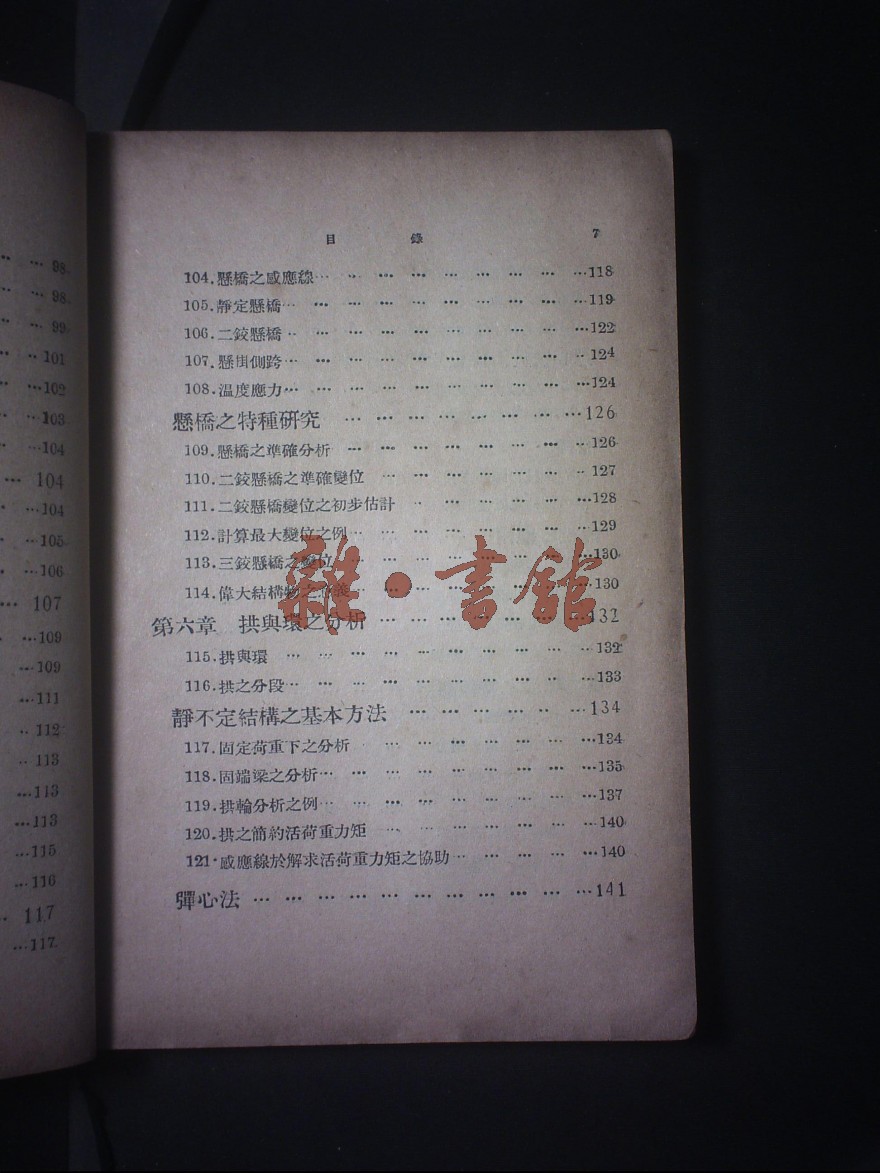 98
98
99
101
102
103
104
104
104
105
106
107
109
109
111
112
113
113
113
115
116
117
117
目 錄 7
104.懸橋之感應線 118
105.靜定懸橋 119
106.二鉸懸橋 122
107.懸掛側跨 124
108.温度應力 124
懸橋之特種研究 126
109.懸橋之準確分析 126
110.二鉸懸橋之準確變位 127
111.二鉸懸橋變位之初步估計 128
112.計算最大變位之例 129
113.三鉸懸橋之變位 130
114.偉大結構物之 130
第六章 拱與環之分析 132
115.拱與環 132
116.拱之分段 133
靜不定結構之基本方法 134
117.固定荷重下之分析 134
118.固端梁之分析 135
119.拱輪分析之例 137
120.拱之簡約活荷重力矩 140
121.感應線於解求活荷重力矩之協助 140
彈心法 141
雜·書館